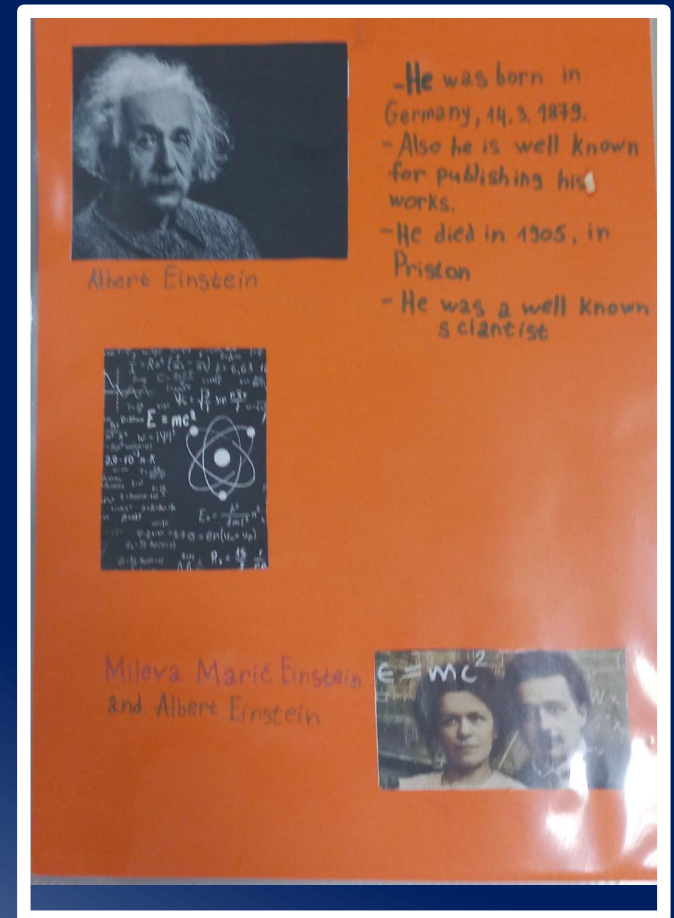 -He was born in
Germany, 14. 3. 1879.
- Also he is well known
for publishing his
works.
-He died in 1905, in
Priston
- He was a well known
sciantist
Albert Einstein
E = mc²
Mileva Marić Einstein
and Albert Einstein
E = mc²